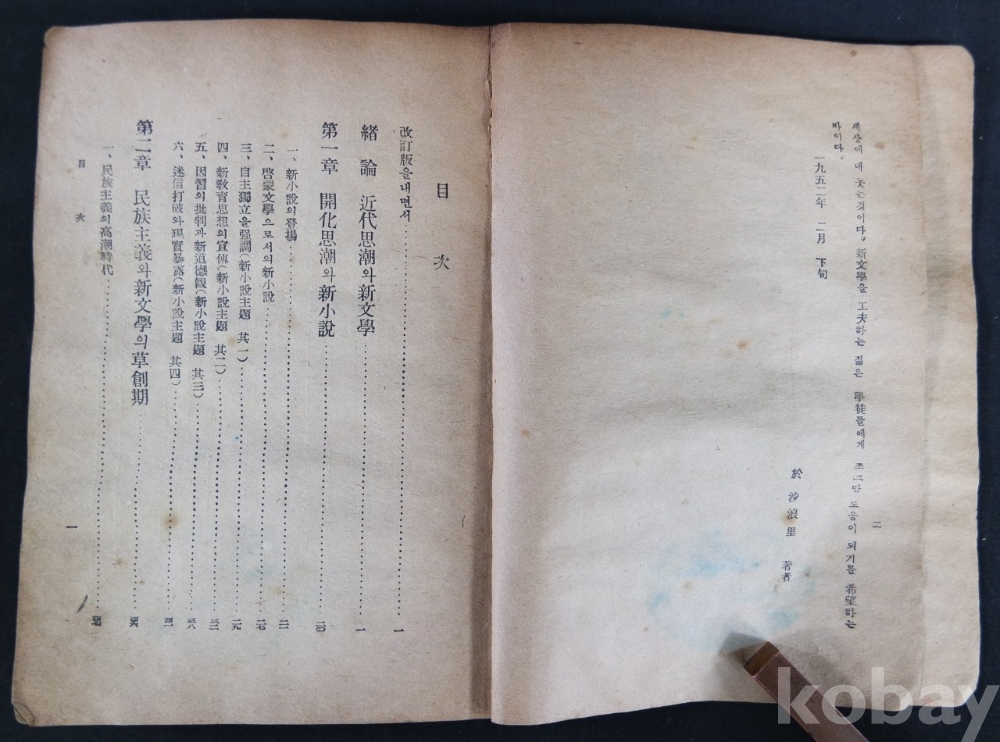 세상에 내 놓는것이다. 新文學을 工夫하는 젊은 學徒들에게 조그만 도움이 되기를 希望하는
바이다.
一九五二年 二月 下旬
於 沙浪里 著者
二
目次
改訂版을내면서 一
緖論 近代思潮와新文學 一
第一章 開化思潮와新小說
一、新小說의登場
二、啓蒙文學으로서의新小說
三、自主獨立을强調(新小說主題 其一)
四、新敎育思想의宣傳(新小說主題 其二)
五、因習의批判과新道德觀(新小說主題 其三)
六、迷信打破와現實暴露(新小說主題 其四)
第二章 民族主義와新文學의草創期
一、民族主義의高潮時代
目次
一
kobay